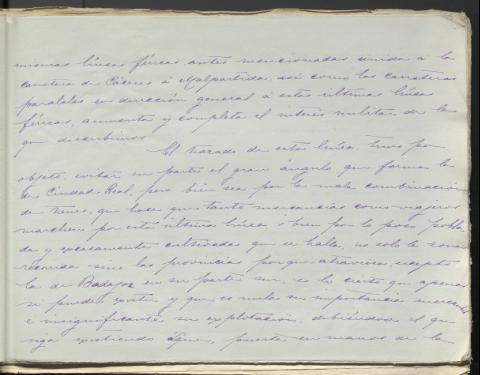 mismas líneas férreas antes mencionadas, unida a la
carretera de Cáceres á Malpartida, así como las carreteras
paralelas en dirección general á esta última línea
férrea, aumenta y completa el interés militar de la
que describimos
El trazado de esta línea tuvo por
objeto, evitar en parte el grave ángulo que forma la
de Ciudad Real, pero bien sea por la mala combinación
de trenes, que hace que tanto mercancías como viajeros
marchen por esta última línea ó bien por lo poco pobla
da y escasamente cultivada que se halla, no solo la zona
recorrida sino las provincias porque atraviesa, excepto
la de Badajoz en su parte sur, es lo cierto que apenas
si puede y que es nula su importancia mercantil
é insignificante su explotación, debiéndose el que
siga existiendo puesta en manos de la